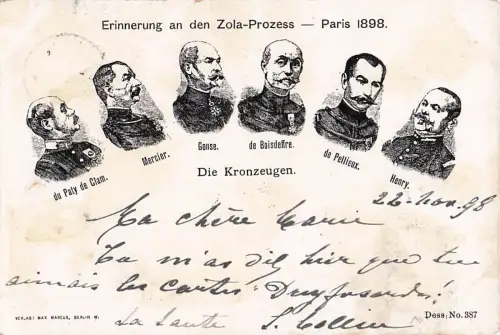 Erinnerung an den Zola-Prozess — Paris 1898.
du Paty de Clam.
Mercier.
Gonse.
de Boisdeffre.
de Pellieux.
Henry.
Die Kronzeugen.
22 Nov. 98
Ma chère Marie
Tu m'as dit hier que tu
aimais les cartes Dreyfusardes!
VERLAG: MAX MARCUS, BERLIN W.
La Tante
Dess: No. 387